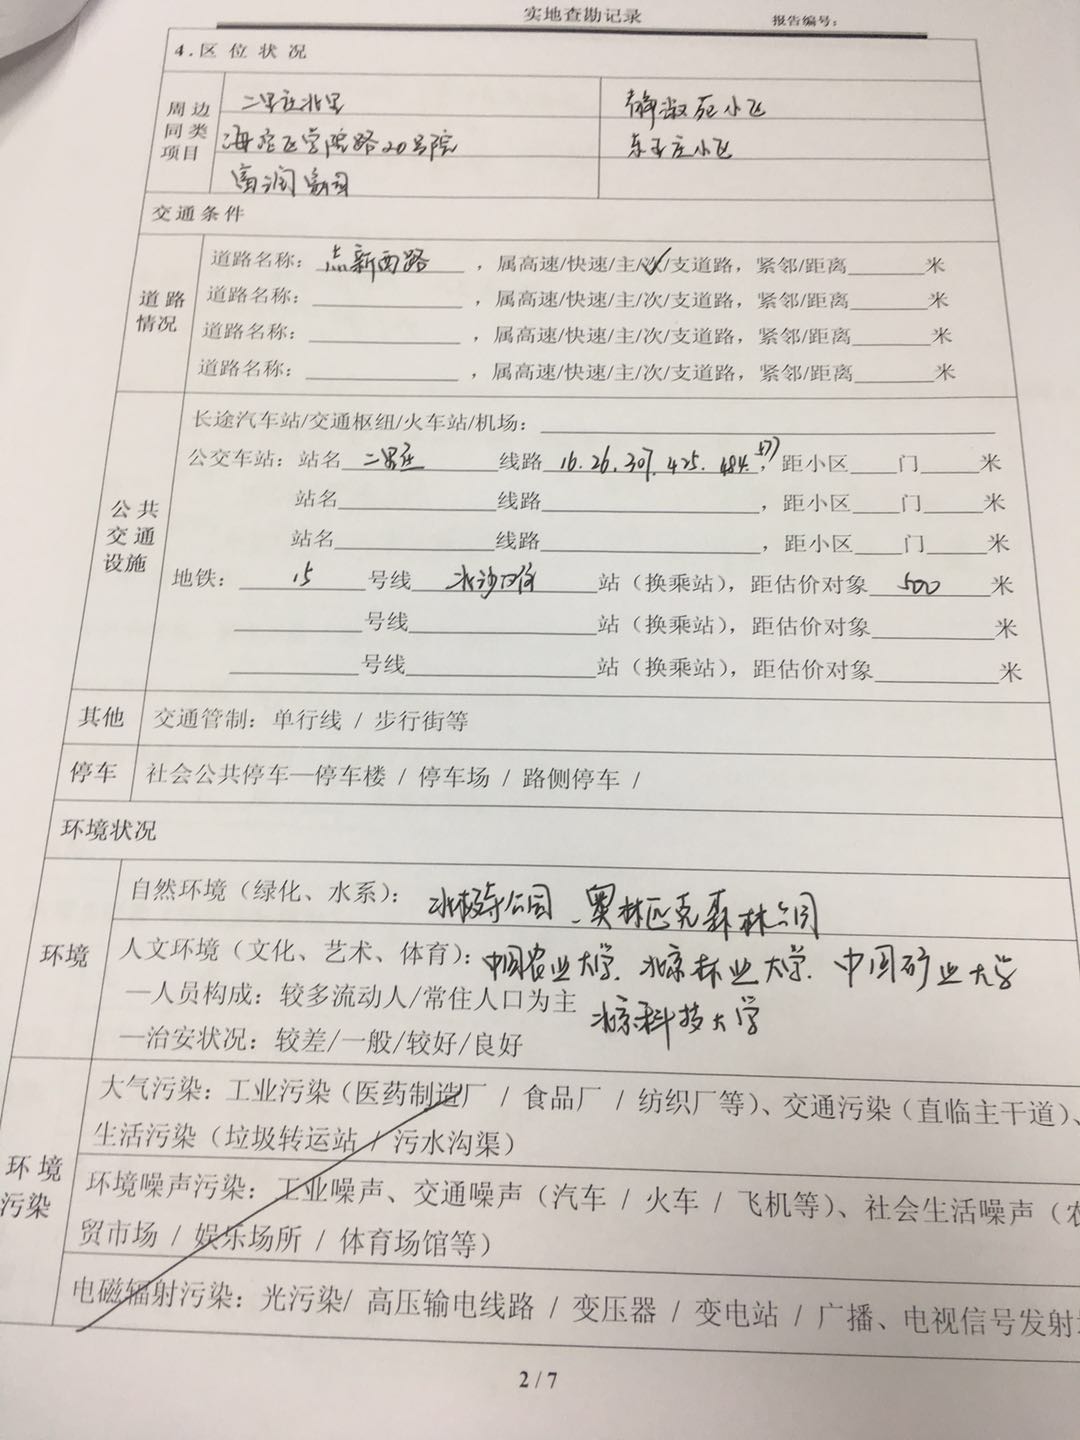 实地查勘记录
报告编号：
4.区位状况
周边同类项目
二里庄北里
静淑苑小区
海淀区学院路20号院
东王庄小区
富润家园
交通条件
道路情况
道路名称：志新西路，属高速/快速/主/次/支道路，紧邻/距离____米
道路名称：____，属高速/快速/主/次/支道路，紧邻/距离____米
道路名称：____，属高速/快速/主/次/支道路，紧邻/距离____米
道路名称：____，属高速/快速/主/次/支道路，紧邻/距离____米
公共交通设施
长途汽车站/交通枢纽/火车站/机场：____
公交车站：站名 二里庄 线路 16.26.307.425.484.577，距小区____门____米
站名____线路____，距小区____门____米
站名____线路____，距小区____门____米
地铁：15号线 北沙滩 站（换乘站），距估价对象 500 米
____号线____站（换乘站），距估价对象____米
____号线____站（换乘站），距估价对象____米
其他 交通管制：单行线 / 步行街等
停车 社会公共停车—停车楼 / 停车场 / 路侧停车 /
环境状况
环境
自然环境（绿化、水系）：北极寺公园、奥林匹克森林公园
人文环境（文化、艺术、体育）：中国农业大学、北京林业大学、中国矿业大学
—人员构成：较多流动人/常住人口为主 北京科技大学
—治安状况：较差/一般/较好/良好
环境污染
大气污染：工业污染（医药制造厂 / 食品厂 / 纺织厂等）、交通污染（直临主干道）、
生活污染（垃圾转运站 / 污水沟渠）
环境噪声污染：工业噪声、交通噪声（汽车 / 火车 / 飞机等）、社会生活噪声（农
贸市场 / 娱乐场所 / 体育场馆等）
电磁辐射污染：光污染/ 高压输电线路 / 变压器 / 变电站 / 广播、电视信号发射
2 / 7